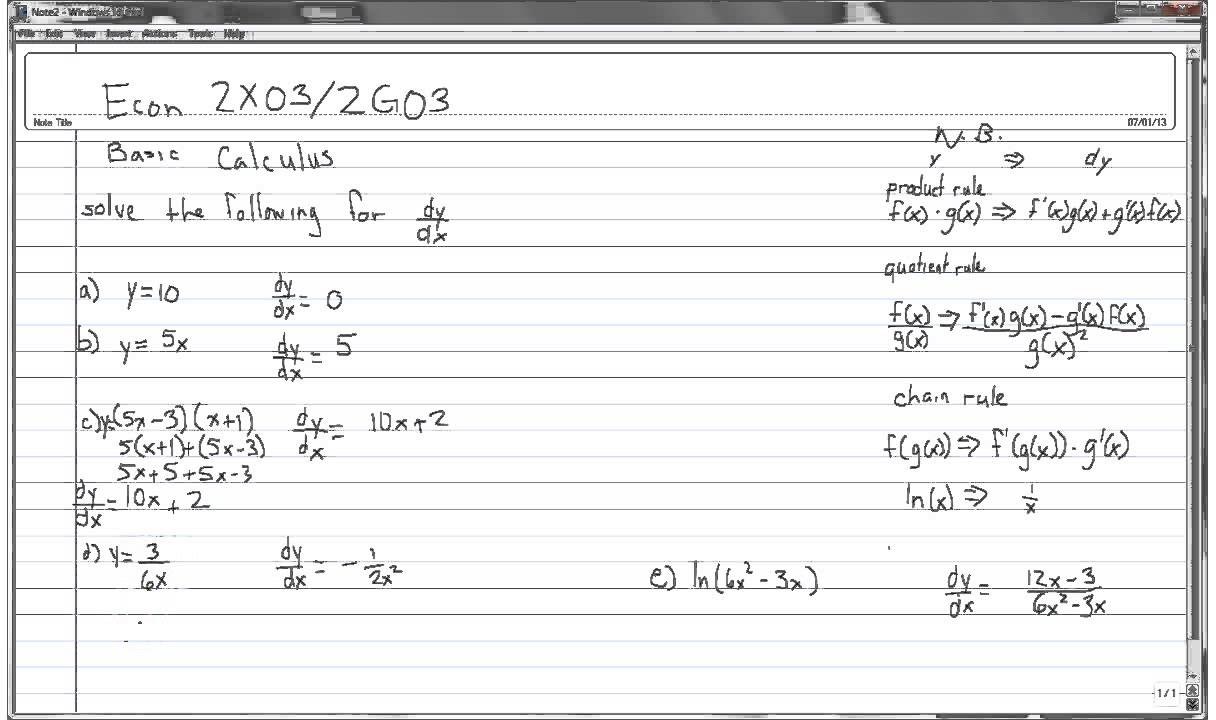 Note2 - Windows Journal
File Edit View Insert Actions Tools Help
Econ 2X03/2G03
Note Title
07/01/13
Basic Calculus
solve the following for dy/dx
a) y=10 dy/dx = 0
b) y= 5x dy/dx = 5
c) y=(5x-3)(x+1) dy/dx = 10x+2
5(x+1)+(5x-3)
5x+5+5x-3
dy/dx = 10x + 2
d) y= 3/6x dy/dx = -1/2x²
e) ln(6x²-3x) dy/dx = 12x-3/6x²-3x
N.B.
y ⇒ dy
product rule
f(x)·g(x) ⇒ f'(x)g(x)+g'(x)f(x)
quotient rule
f(x)/g(x) ⇒ f'(x)g(x)-g'(x)f(x)/g(x)²
chain rule
f(g(x)) ⇒ f'(g(x))·g'(x)
ln(x) ⇒ 1/x
1/1